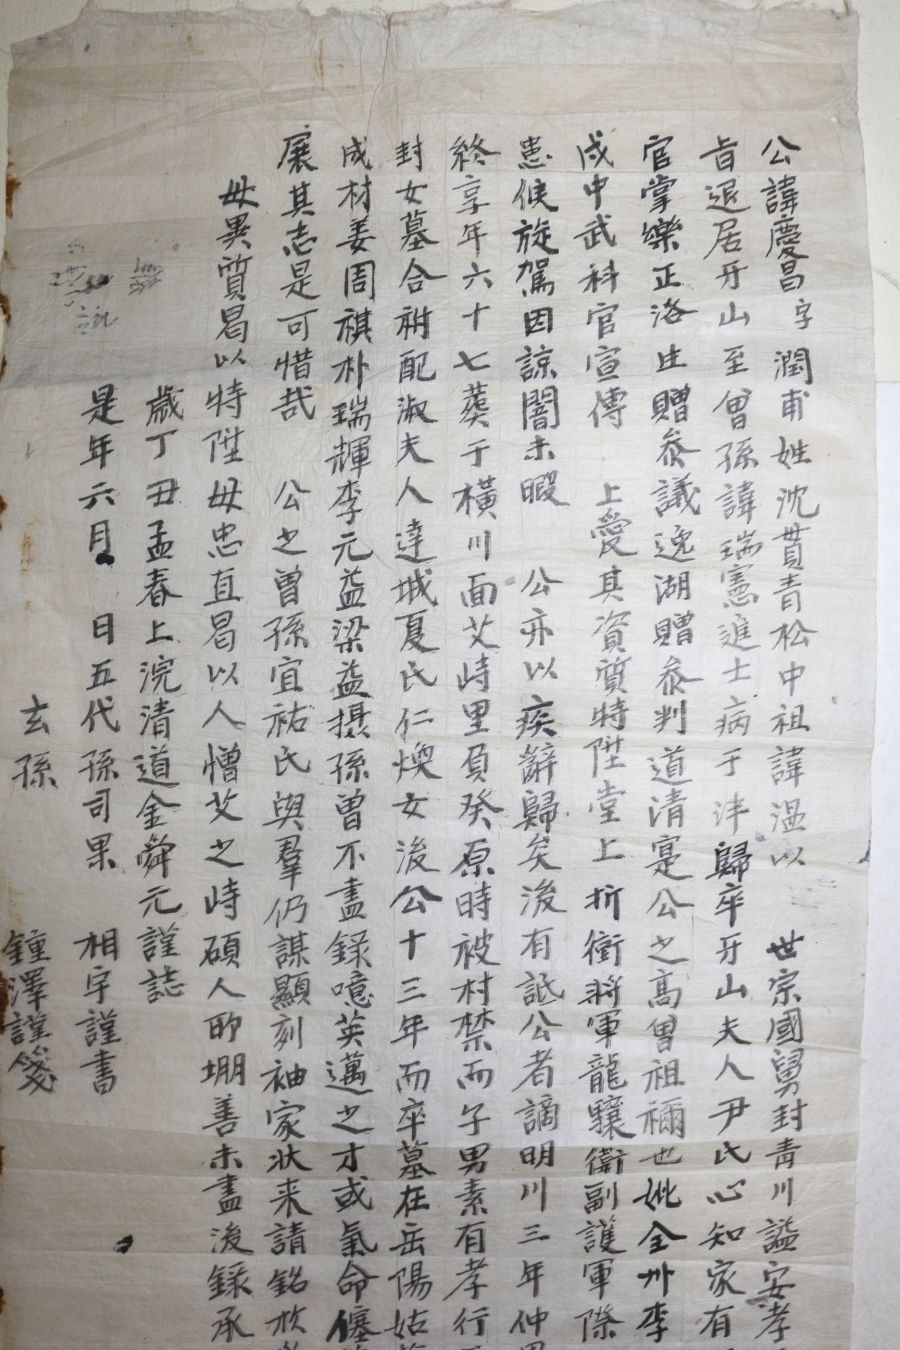 公諱慶昌字潤甫姓沈貫青松中祖諱温以 世宗國舅封青川謚安孝
旨退居牙山至曾孫諱瑞憲進士病于泮歸卒牙山夫人尹氏心知家有
官掌樂正洛生贈叅議逸湖贈叅判道清寔公之高曾祖禰也妣全州李
戌中武科官宣傳 上愛其資質特陞堂上折衝將軍龍驤衛副護軍際
患候旋駕因諒闇未暇 公亦以疾辭歸矣後有詆公者謫明川三年仲
終享年六十七葬于橫川面艾峙里負癸原時被村禁而子男素有孝行
封女墓合祔配淑夫人達城夏氏仁煥女後公十三年而卒墓在岳陽姑
成材姜周祺朴瑞輝李元益梁益摄孫曾不盡錄噫英邁之才或氣命
展其志是可惜哉 公之曾孫宜祐氏與羣仍謀顯刻袖家狀来請銘於
毋異質曷以特陞毋忠直曷以人憎艾之峙碩人所堋善未盡後錄承
歲丁丑孟春上浣清道金舜元謹誌
是年六月 日五代孫司果 相宇謹書
玄孫 鍾澤謹箋